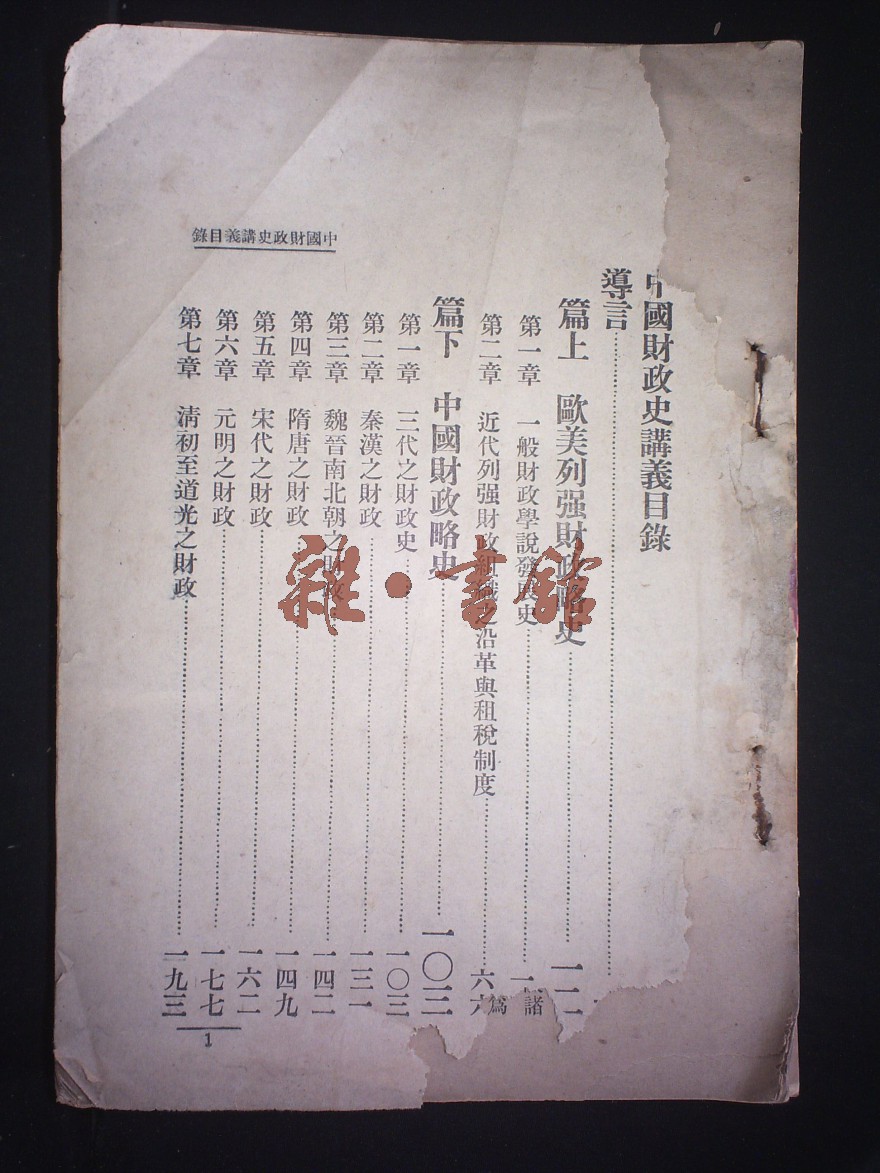 中國財政史講義目錄
中國財政史講義目錄
導言
篇上　歐美列强財政略史　一二
第一章　一般財政學說發展史
第二章　近代列强財政組織之沿革與租稅制度　六六
篇下　中國財政略史　一〇三
第一章　三代之財政史　一〇三
第二章　秦漢之財政　一三一
第三章　魏晉南北朝之財政　一四二
第四章　隋唐之財政　一四九
第五章　宋代之財政　一六二
第六章　元明之財政　一七七
第七章　淸初至道光之財政　一九三
諸
爲
1
雜·書館